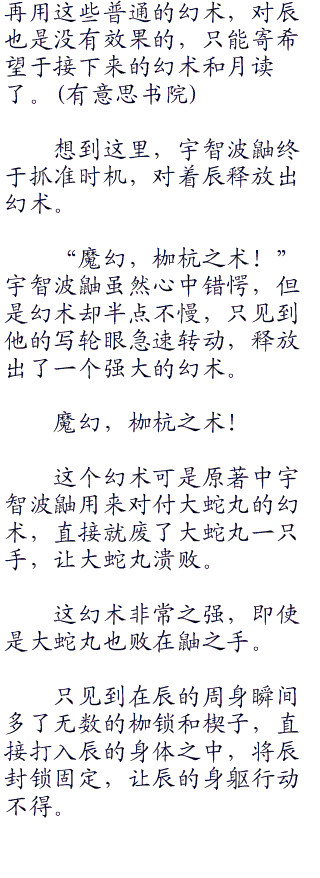 再用这些普通的幻术，对辰
也是没有效果的，只能寄希
望于接下来的幻术和月读
了。(有意思书院)
想到这里，宇智波鼬终
于抓准时机，对着辰释放出
幻术。
“魔幻，枷杭之术！”
宇智波鼬虽然心中错愕，但
是幻术却半点不慢，只见到
他的写轮眼急速转动，释放
出了一个强大的幻术。
魔幻，枷杭之术！
这个幻术可是原著中宇
智波鼬用来对付大蛇丸的幻
术，直接就废了大蛇丸一只
手，让大蛇丸溃败。
这幻术非常之强，即使
是大蛇丸也败在鼬之手。
只见到在辰的周身瞬间
多了无数的枷锁和楔子，直
接打入辰的身体之中，将辰
封锁固定，让辰的身躯行动
不得。